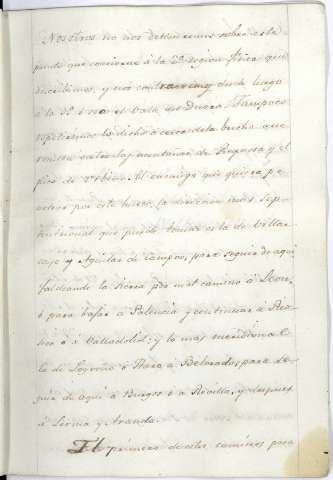 Nosotros no nos detendremos sobre este
punto que concierne á la 2ª region fisica que
describimos, y nos contraeremos desde luego
á la 1ª ó sea el Valle del Duero. Tampoco
repetiremos lo dicho acerca de la brecha que
media entre las montañas de Reynosa y el
pico de Urbion. Al enemigo que quiera pe
netrar por este hueco, la direccion mas sep-
tentrional que puede tomar es la de Villar
cayo y Aguilar de Campoo, para seguir de aqui
faldeando la sierra por mal camino á Leon,
ó para bajar á Palencia y continuar á Rio
seco ó á Valladolid; y la mas meridional
la de Logroño ó Haro á Belorado, para se
guir de aqui á Burgos ó á Revilla, y despues
á Lerma y Aranda.
El primero de estos caminos para